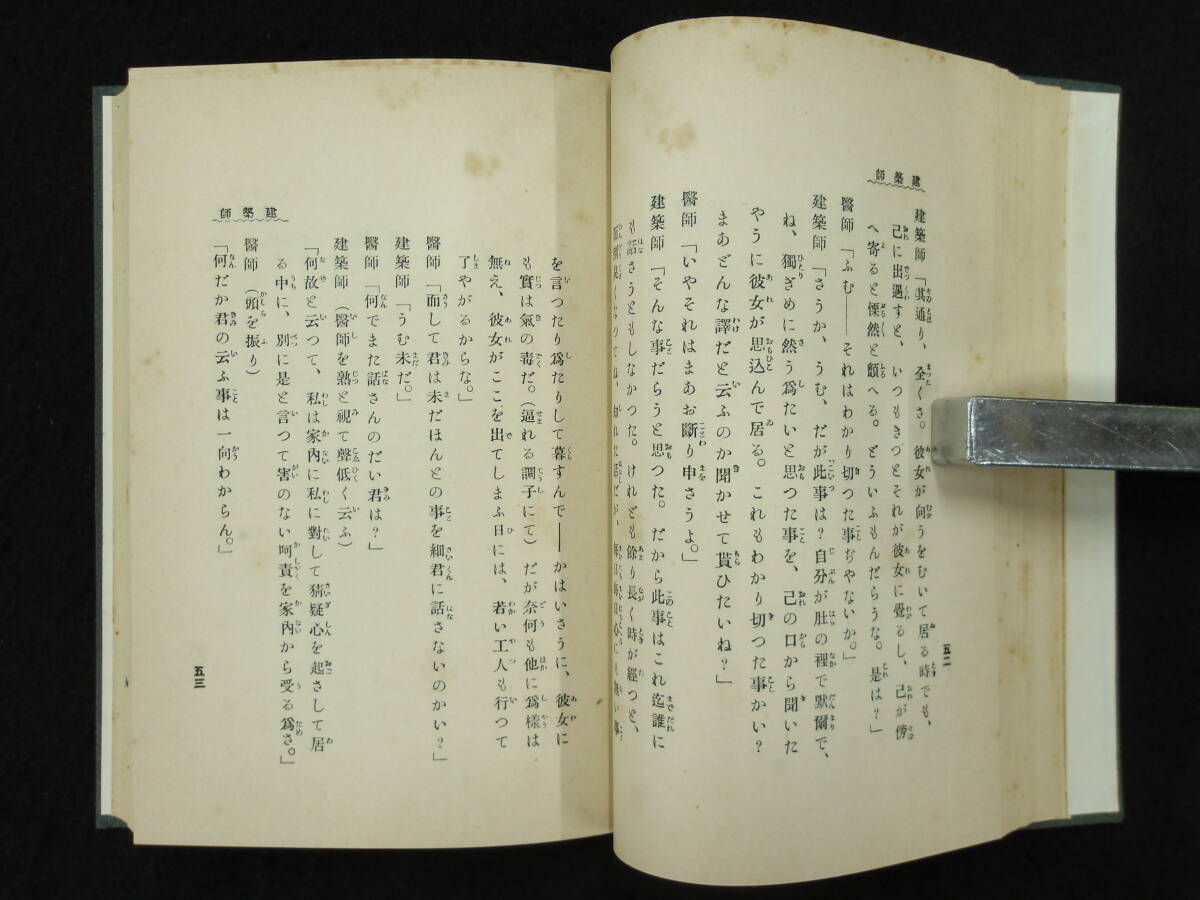 建築師
建築師「其通り、全くさ。彼女が向うをむいて居る時でも、
己に出遇すと、いつもきつとそれが彼女に覺るし、己が傍
へ寄ると慄然と顫へる。どういふもんだらうな。是は？」
醫師「ふむ――それはわかり切つた事ぢやないか。」
建築師「さうか、うむ、だが此事は？自分が肚の裡で默爾で、
ね、獨ぎめに然う爲たいと思つた事を、己の口から聞いた
やうに彼女が思込んで居る。これもわかり切つた事かい？
まあどんな譯だと云ふのか聞かせて貰ひたいね？」
醫師「いやそれはまあお斷り申さうよ。」
建築師「そんな事だらうと思つた。だから此事はこれ迄誰に
も話さうともしなかつた。けれども餘り長く時が經つと、
五二
建築師
を言つたり爲たりして暮すんで――かはいさうに、彼女に
も實は氣の毒だ。（逼れる調子にて）だが奈何も他に爲樣は
無え、彼女がここを出てしまふ日には、若い工人も行つて
了やがるからな。」
醫師「而して君は未だほんとの事を細君に話さないのかい？」
建築師「うむ未だ。」
醫師「何でまた話さんのだい君は？」
建築師（醫師を熟と視て聲低く云ふ）
「何故と云つて、私は家内に私に對して猜疑心を起さして居
る中に、別に是と言つて害のない呵責を家内から受る爲さ。」
醫師（頭を振り）
「何だか君の云ふ事は一向わからん。」
五三